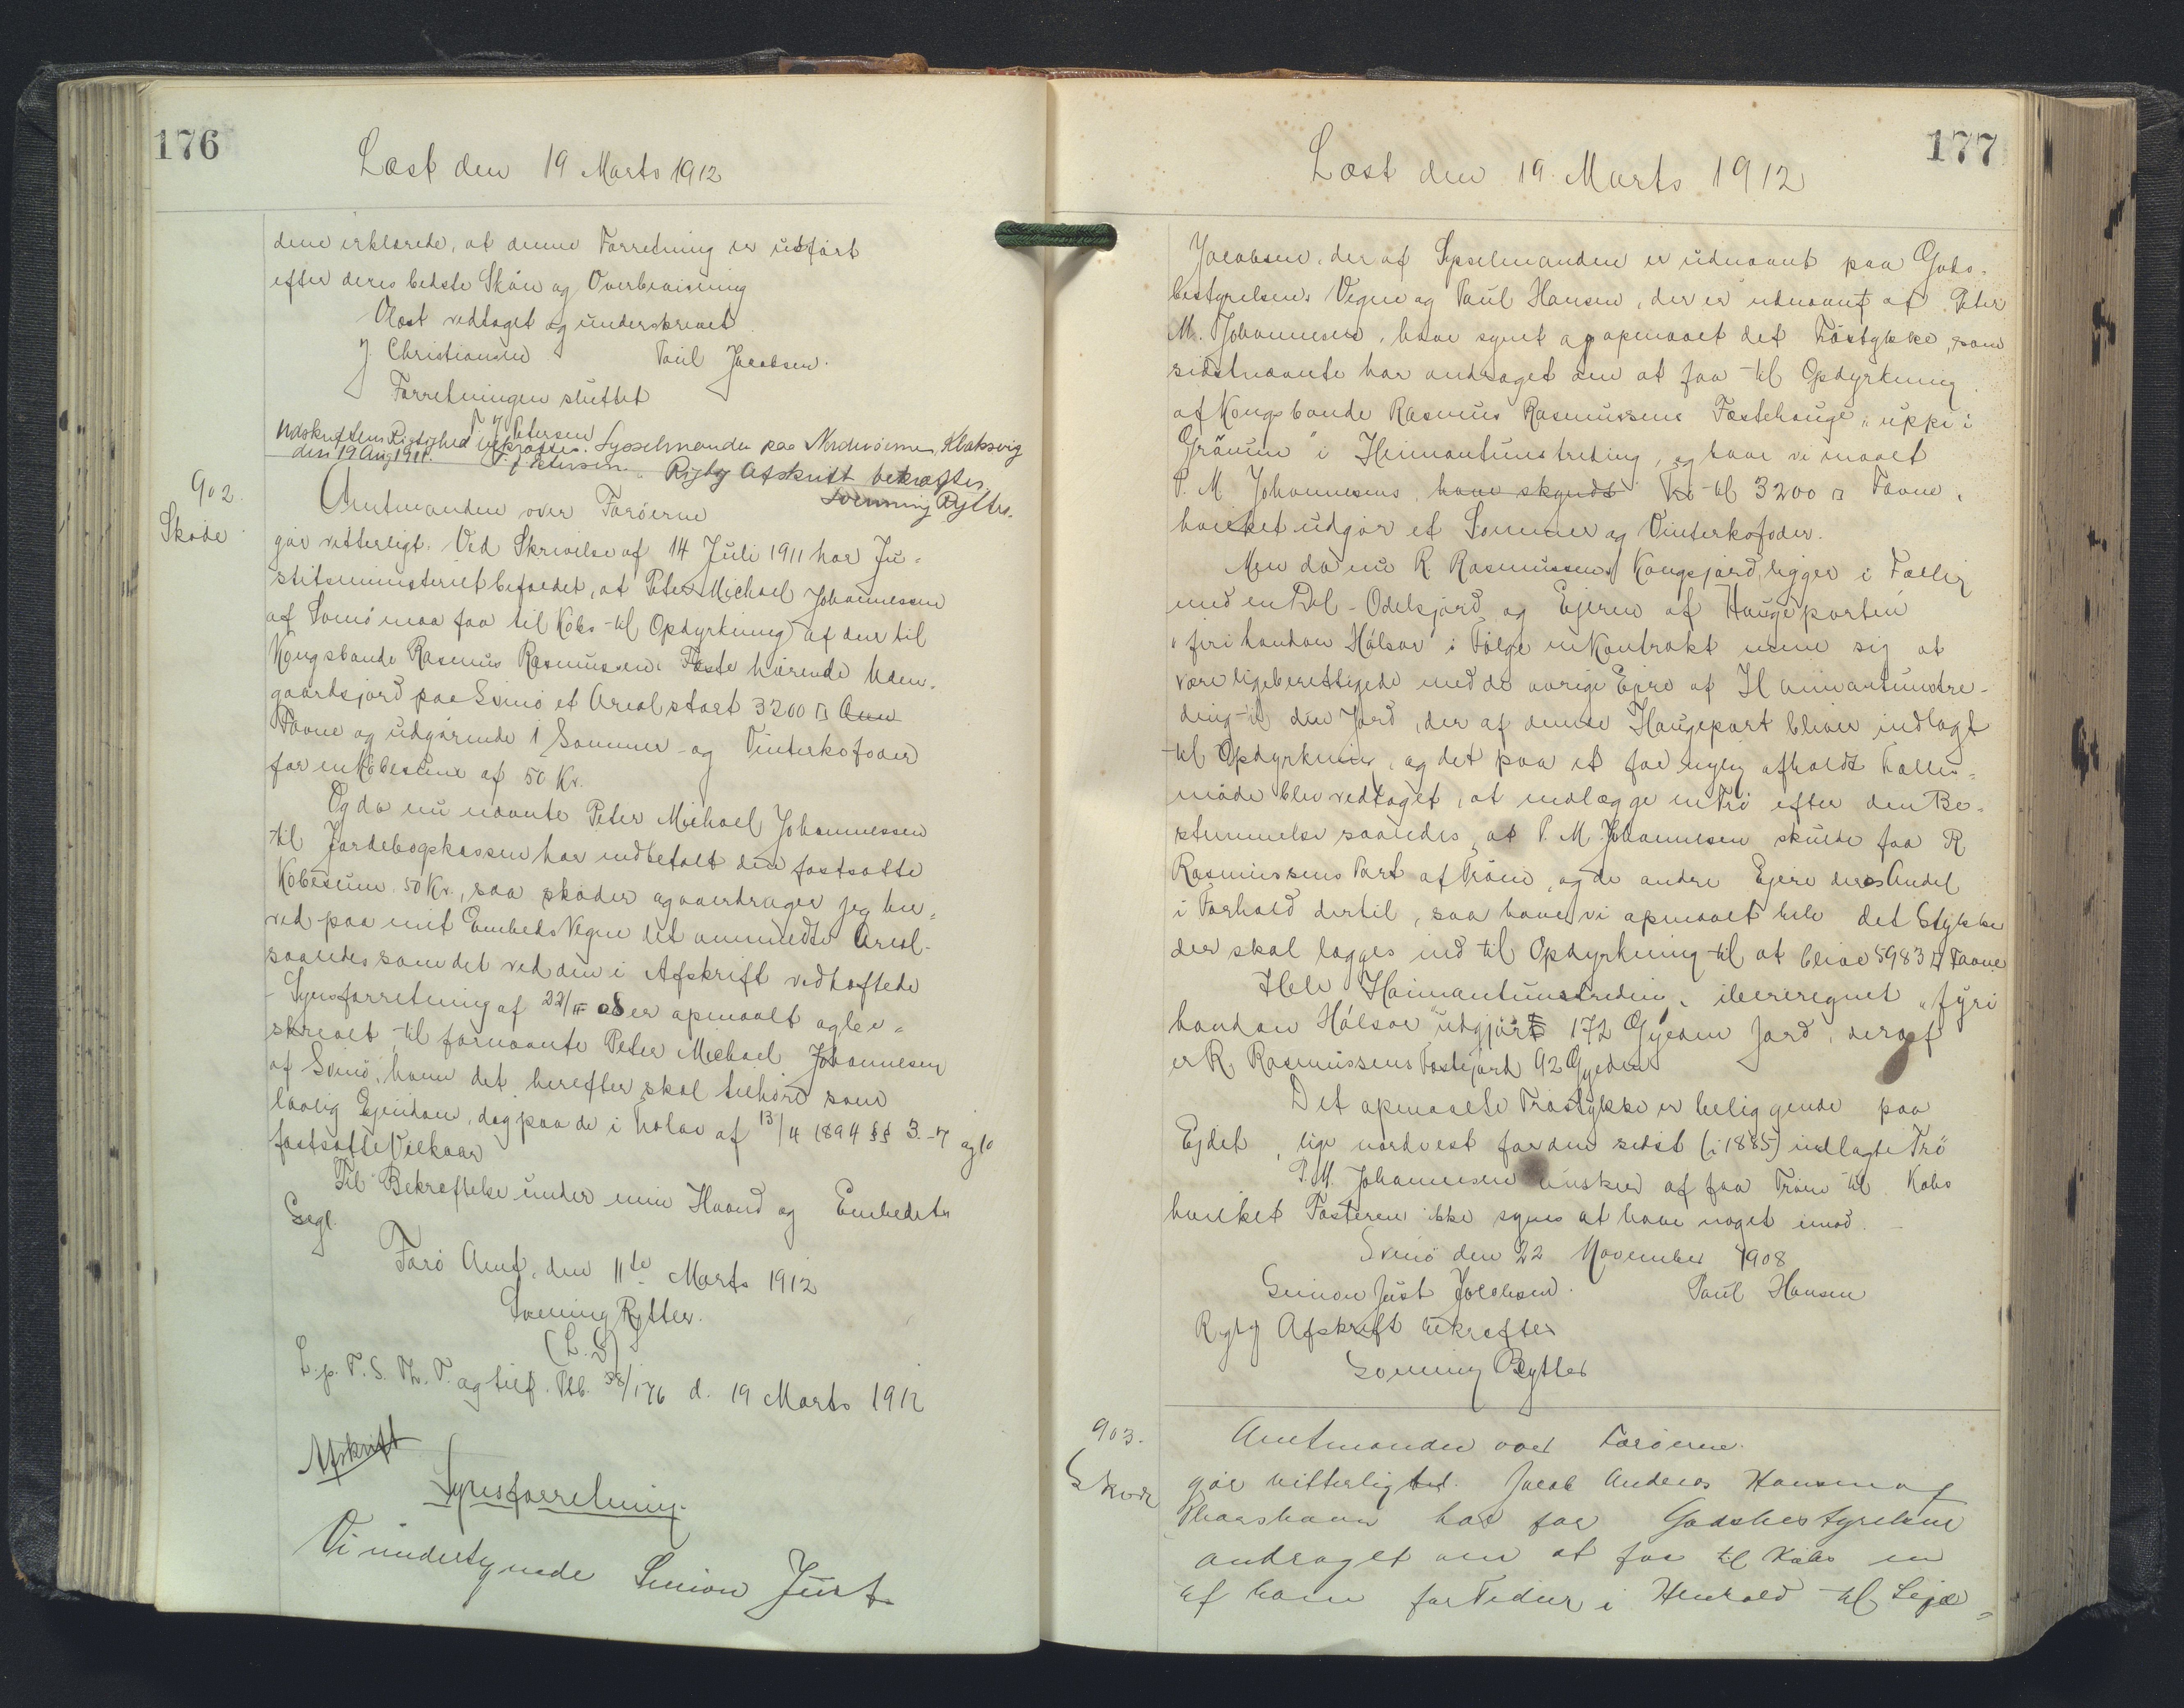 176
Læst den 19 Marts 1912
dene erklærede, at denne Forretning er udført
efter deres bedste Skön og Overbevisning
Oplæst vedtaget og underskrevet
J. Christiansen Poul Jacobsen.
Forretningen sluttet
P J Petersen
Udskriftens Rigtighed bekræftes. Sysselmanden paa Nordrøerne, Klaksvig
den 19 Aug 1911. P. J. Petersen. Rigtig Afskrift bekræftes.
Svenning Rytter.
902.
Skøde
Amtmanden over Færöerne
gör vitterligt. Ved Skrivelse af 14 Juli 1911 har Ju-
stitsministeriet befalet, at Peter Michael Johannessen
af Svinö maa faa til Köbs til Opdyrkning af den til
Kongsbonde Rasmus Rasmussens Fæste hørende Uden-
gaardsjord paa Svinö et Areal stort 3200 □ Aun
Favne og udgörende 1 Sommer- og Vinterkofoder
for en Köbesum af 50 Kr.
Og da nu nævnte Peter Michael Johannessen
til Jordebogskassen har indbetalt den fastsatte
Köbesum 50 Kr., saa sköder og overdrager jeg her-
ved paa mit Embeds Vegne det ommeldte Areal
saaledes som det ved den i Afskrift vedhæftede
Synsforretning af 22/11 08 er opmaalt og be-
skrevet til fornævnte Peter Michael Johannesen
af Svinö, ham det herefter skal tilhöre som
lovlig Ejendom, dog paa de i Lov af 13/4 1894 §§ 3-7 og 10
fastsatte Vilkaar
Til Bekræftelse under min Haand og Embedets
Segl.
Færö Amt, den 11te Marts 1912
Svenning Rytter.
(L. S)
L. p. F. S. Th. T. og tilf. Pb. 58/176 d. 19 Marts 1912
Afskrift
Synsforretning.
Vi undertegnede Simon Just
177
Læst den 19 Marts 1912
Jacobsen, der af Sysselmanden er udnævnt paa Gods-
bestyrelsens Vegne og Poul Hansen, der er udnævnt af Peter
M. Johannesen, have synet og opmaalt det Tröstykke, som
sidstnævnte har andraget om at faa til Opdyrkning
af Kongsbonde Rasmus Rasmussens Fæstehauge „uppi i
Gröunum" i Heimantunstreding, og have vi maalt
P. M Johannesens, have skyndt Trö til 3200 □ Favne,
hvilket udgör et Sommer og Vinterkofoder.
Men da nu R. Rasmussens Kongsjord ligger i Fællig
med en Del Odelsjord og Ejeren af Haugeparten
„firi handan Hálsar" i Fölge en Kontrakt mene sig at
være ligeberettigede med de övrige Ejere af Heimantunstre-
ding til den Jord, der af denne Haugepart bliver indlagt
til Opdyrkning, og det paa et for nylig afholdt Fælles-
möde blev vedtaget, at indlægge en Trö efter den Be-
stemmelse saaledes, at P. M Johannesen skulde faa R
Rasmussens Part af Tröen, og de andre Ejere deres Andel
i Forhold dertil, saa have vi opmaalt hele det Stykke
der skal lægges ind til Opdyrkning til at blive 5983 □ Favne
Hele Heimantunstreding, iberegnet „fyri
handan Hálsar" udgjör 172 Gyeden Jord, deraf
er R. Rasmussens Fæstejord 92 Gyeden
Det opmaalte Tröstykke er beliggende paa
Ejdet, lige nordvest for den sidst (i 1885) indlagte Trö
P.M. Johannesen önsker at faa Tröen til Köbs
hvilket Fæsteren ikke synes at have noget imod.
Svinö den 22 November 1908
Simon Just Jacobsen. Poul Hansen
Rigtig Afskrift bekræftes
Svenning Rytter
903.
Sköde
Amtmanden over Færöerne.
gör vitterligt. Jacob Andreas Hansen af
Thorshavn har for Godsbestyrelsen
andraget om at faa til Köbs en
af ham for Tiden i Henhold til Leje-